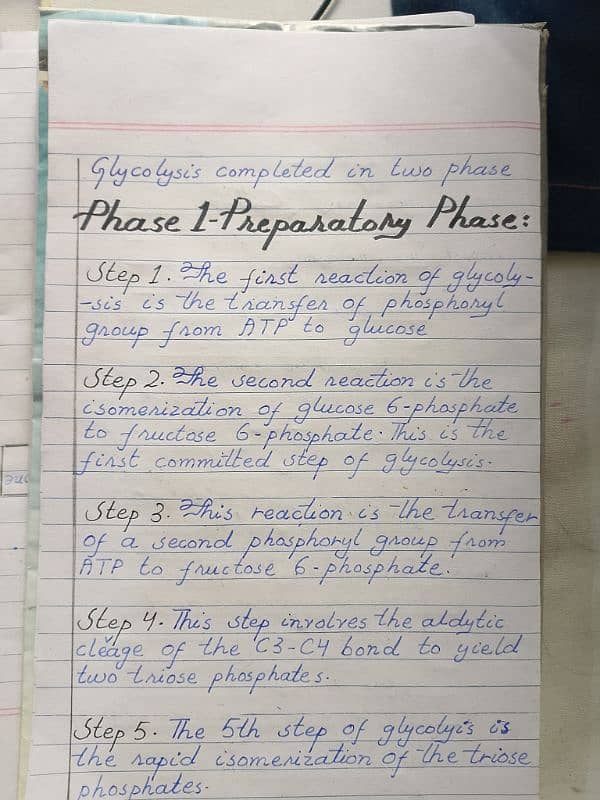 Glycolysis completed in two phase
Phase 1-Preparatory Phase:
Step 1. The first reaction of glycoly-
-sis is the transfer of phosphoryl
group from ATP to glucose
Step 2. The second reaction is the
isomerization of glucose 6-phosphate
to fructose 6-phosphate. This is the
first committed step of glycolysis.
Step 3. This reaction is the transfer
of a second phosphoryl group from
ATP to fructose 6-phosphate.
Step 4. This step involves the aldytic
cleage of the C3-C4 bond to yield
two triose phosphates.
Step 5. The 5th step of glycolyis is
the rapid isomerization of the triose
phosphates.